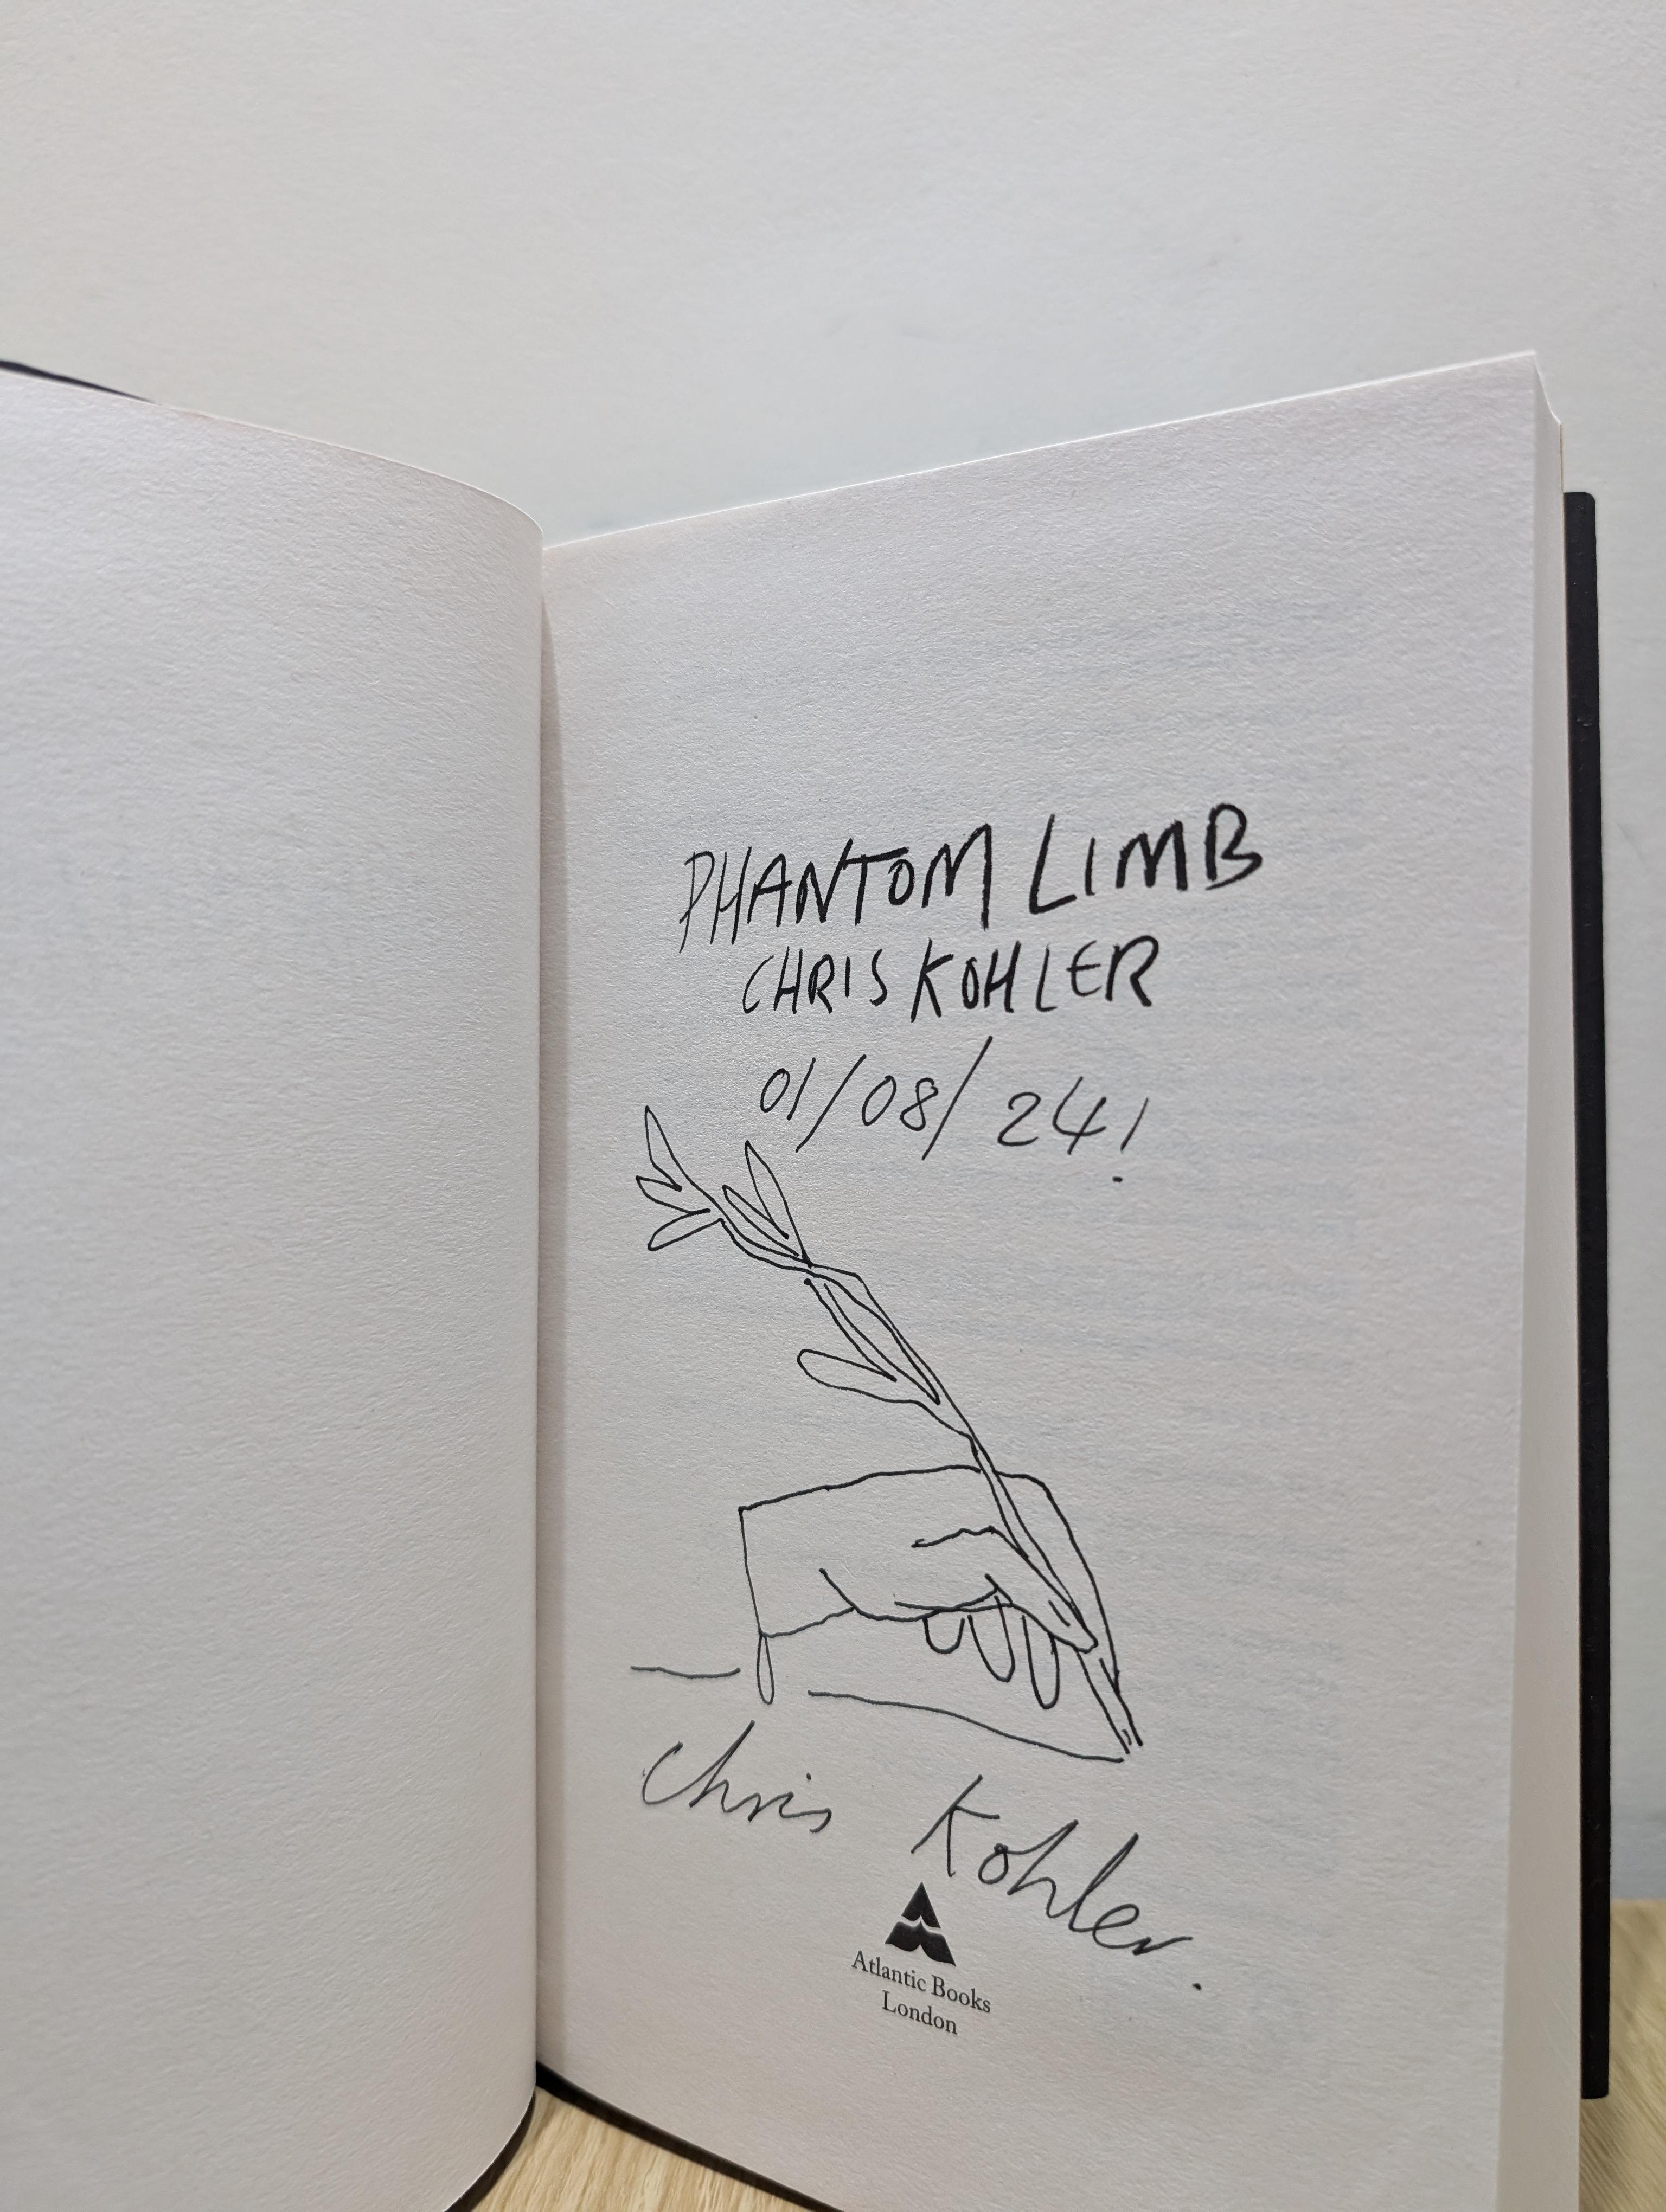 PHANTOM LIMB
CHRIS KOHLER
01/08/24!
Chris Kohler.
Atlantic Books
London